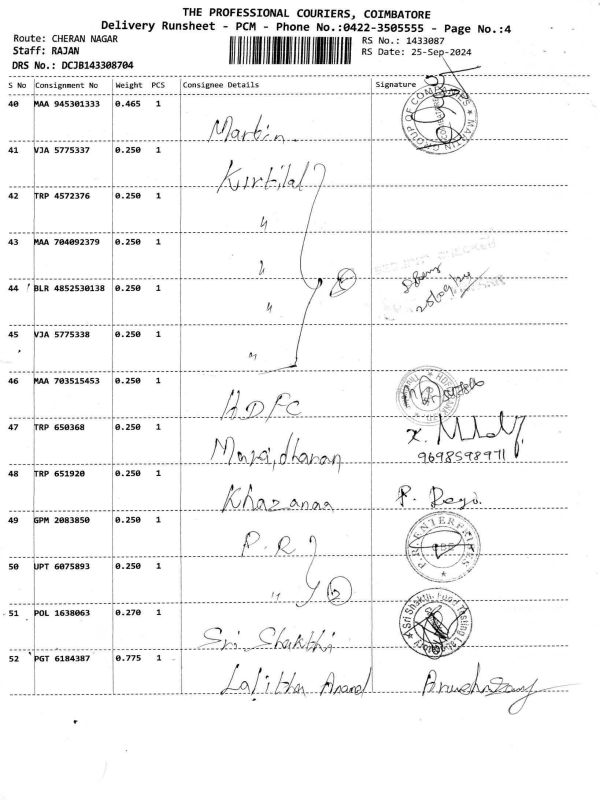 THE PROFESSIONAL COURIERS, COIMBATORE
Delivery Runsheet - PCM - Phone No.:0422-3505555 - Page No.:4
Route: CHERAN NAGAR
RS No.: 1433087
Staff: RAJAN
RS Date: 25-Sep-2024
DRS No.: DCJB143308704
S No Consignment No Weight PCS Consignee Details Signature
40 MAA 945301333 0.465 1
Martin. MARTIN GROUP OF COMPANIES
41 VJA 5775337 0.250 1
Kirtilal
42 TRP 4572376 0.250 1
"
43 MAA 704092379 0.250 1
"
44 BLR 4852530138 0.250 1
25/09/24
"
45 VJA 5775338 0.250 1
"
46 MAA 703515453 0.250 1
HDFC
47 TRP 650368 0.250 1
9698598971
48 TRP 651920 0.250 1
Khazanaa
49 GPM 2083850 0.250 1
P.R P.R. ENTERPRISES
50 UPT 6075893 0.250 1
" 2
51 POL 1638063 0.270 1
Sri Shakthi Sri Shakthi Food Testing
52 PGT 6184387 0.775 1
Lalitha Anand